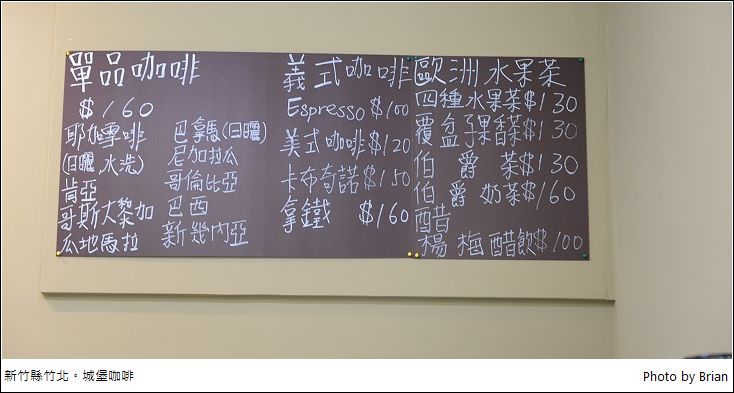 單品咖啡
$160
耶加雪啡
(日曬,水洗)
肯亞
哥斯大黎加
瓜地馬拉
巴拿馬(日曬)
尼加拉瓜
哥倫比亞
巴西
新幾內亞
義式咖啡
Espresso $100
美式咖啡$120
卡布奇諾$150
拿鐵 $160
歐洲水果茶
四種水果茶$130
覆盆子果香茶$130
伯爵茶$130
伯爵奶茶$160
醋
楊梅醋飲$100
新竹縣竹北。城堡咖啡
Photo by Brian